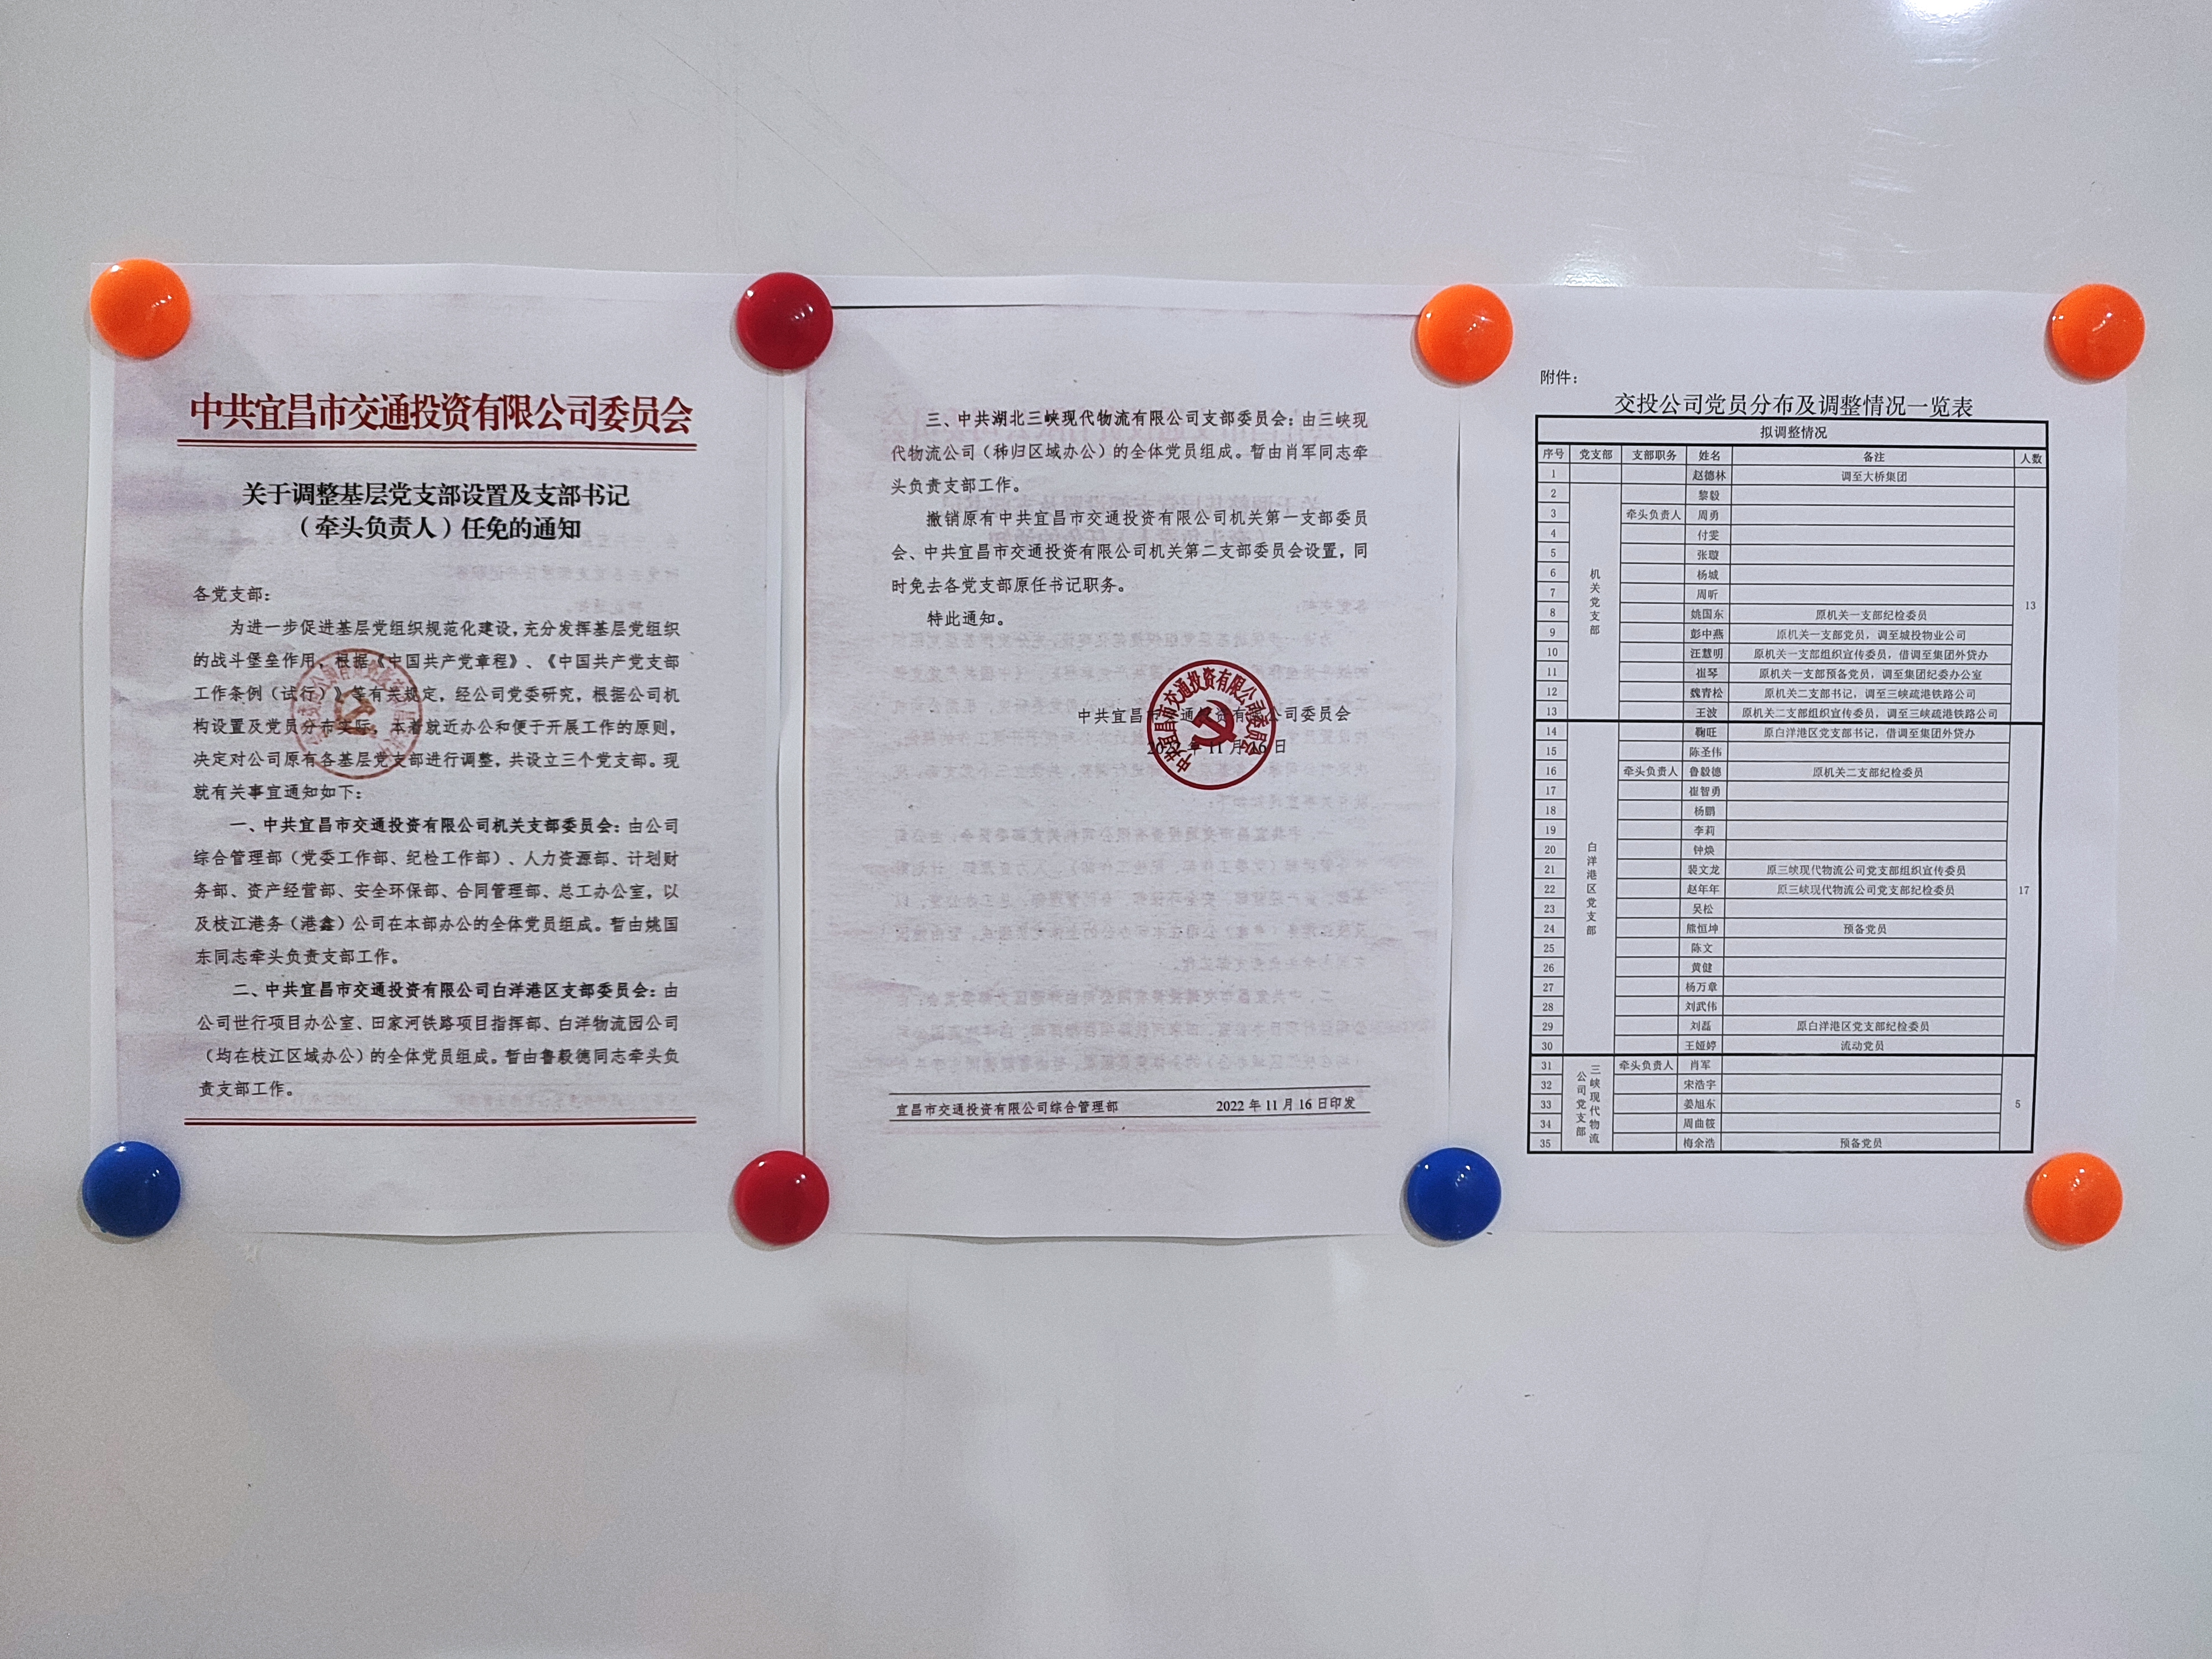 中共宜昌市交通投资有限公司委员会
关于调整基层党支部设置及支部书记
（牵头负责人）任免的通知
各党支部：
为进一步促进基层党组织规范化建设，充分发挥基层党组织
的战斗堡垒作用，根据《中国共产党章程》、《中国共产党支部
工作条例（试行）》等有关规定，经公司党委研究，根据公司机
构设置及党员分布实际，本着就近办公和便于开展工作的原则，
决定对公司原有各基层党支部进行调整，共设立三个党支部。现
就有关事宜通知如下：
一、中共宜昌市交通投资有限公司机关支部委员会：由公司
综合管理部（党委工作部、纪检工作部）、人力资源部、计划财
务部、资产经营部、安全环保部、合同管理部、总工办公室，以
及枝江港务（港鑫）公司在本部办公的全体党员组成。暂由姚国
东同志牵头负责支部工作。
二、中共宜昌市交通投资有限公司白洋港区支部委员会：由
公司世行项目办公室、田家河铁路项目指挥部、白洋物流园公司
（均在枝江区域办公）的全体党员组成。暂由鲁毅德同志牵头负
责支部工作。
三、中共湖北三峡现代物流有限公司支部委员会：由三峡现
代物流公司（秭归区域办公）的全体党员组成。暂由肖军同志牵
头负责支部工作。
撤销原有中共宜昌市交通投资有限公司机关第一支部委员
会、中共宜昌市交通投资有限公司机关第二支部委员会设置，同
时免去各党支部原任书记职务。
特此通知。
中共宜昌市交通投资有限公司委员会
2022年11月16日
中共宜昌市交通投资有限公司委员会
宜昌市交通投资有限公司综合管理部 2022年11月16日印发
附件：
交投公司党员分布及调整情况一览表
拟调整情况
序号 党支部 支部职务 姓名 备注 人数
1 赵德林 调至大桥集团
机关党支部 13
2 黎毅
3 牵头负责人 周勇
4 付雯
5 张璇
6 杨城
7 周昕
8 姚国东 原机关一支部纪检委员
9 彭中燕 原机关一支部党员，调至城投物业公司
10 汪慧明 原机关一支部组织宣传委员，借调至集团外贷办
11 崔琴 原机关一支部预备党员，调至集团纪委办公室
12 魏青松 原机关二支部书记，调至三峡疏港铁路公司
13 王波 原机关二支部组织宣传委员，调至三峡疏港铁路公司
白洋港区党支部 17
14 鞠旺 原白洋港区党支部书记，借调至集团外贷办
15 陈圣伟
16 牵头负责人 鲁毅德 原机关二支部纪检委员
17 崔智勇
18 杨鹏
19 李莉
20 钟焕
21 裴文龙 原三峡现代物流公司党支部组织宣传委员
22 赵年年 原三峡现代物流公司党支部纪检委员
23 吴松
24 熊恒坤 预备党员
25 陈文
26 黄健
27 杨万章
28 刘武伟
29 刘磊 原白洋港区党支部纪检委员
30 王娅婷 流动党员
三峡现代物流公司党支部 5
31 牵头负责人 肖军
32 宋浩宇
33 姜旭东
34 周曲筱
35 梅余浩 预备党员